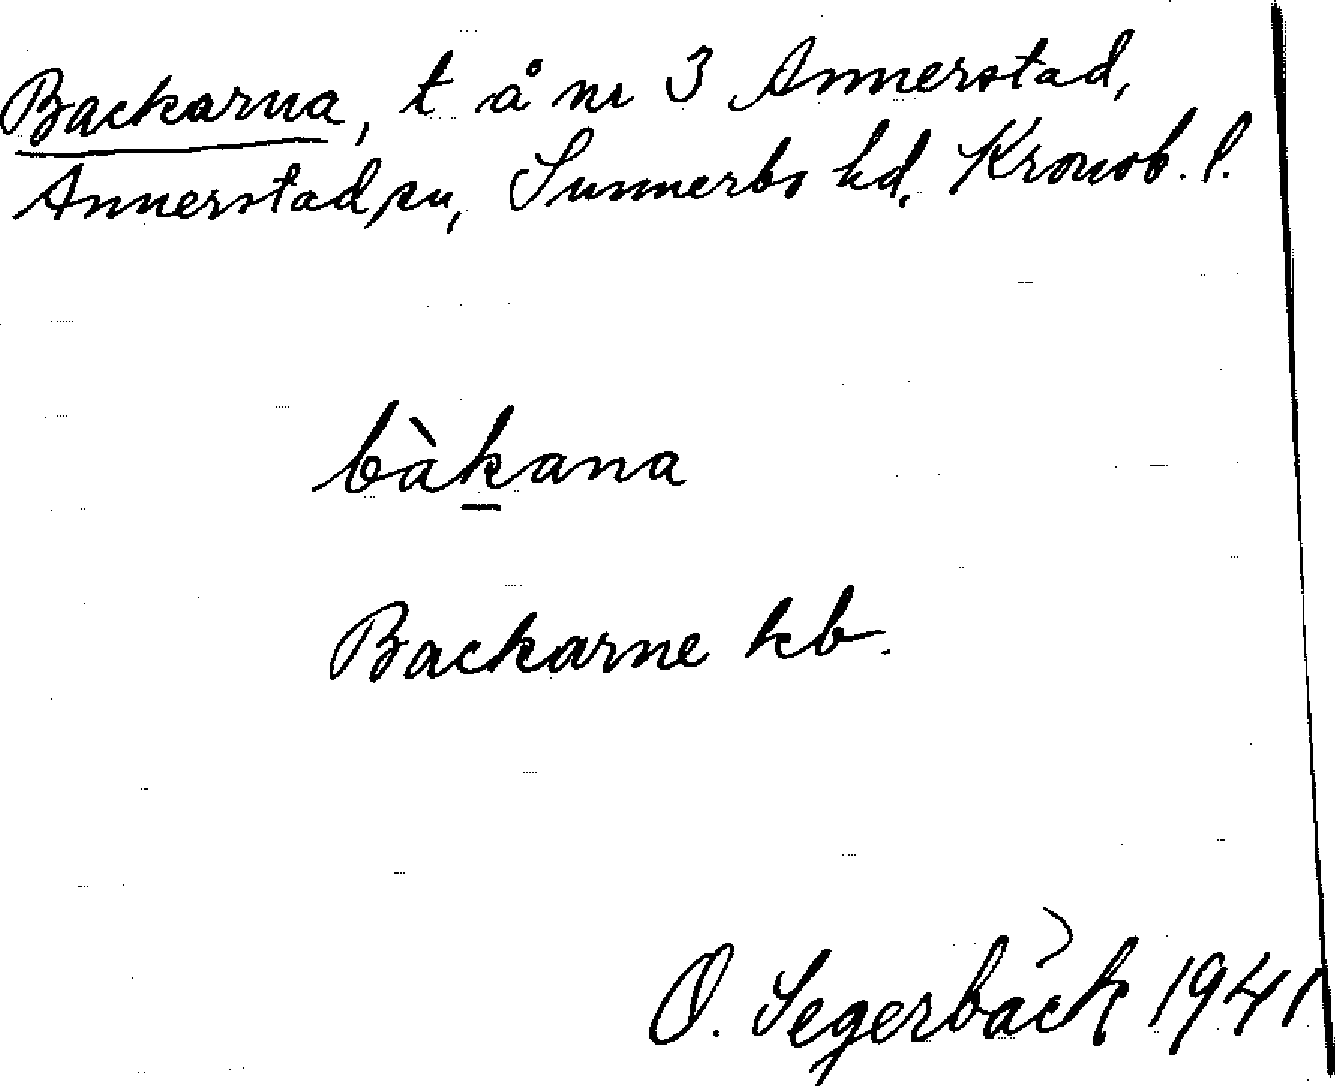 Backarna, t å nr 3 Annerstad,
Annerstad sn, Sunnerbo hd. Kronob. l.
bàkana
Backarne kb.
O. Segerbäck 1941